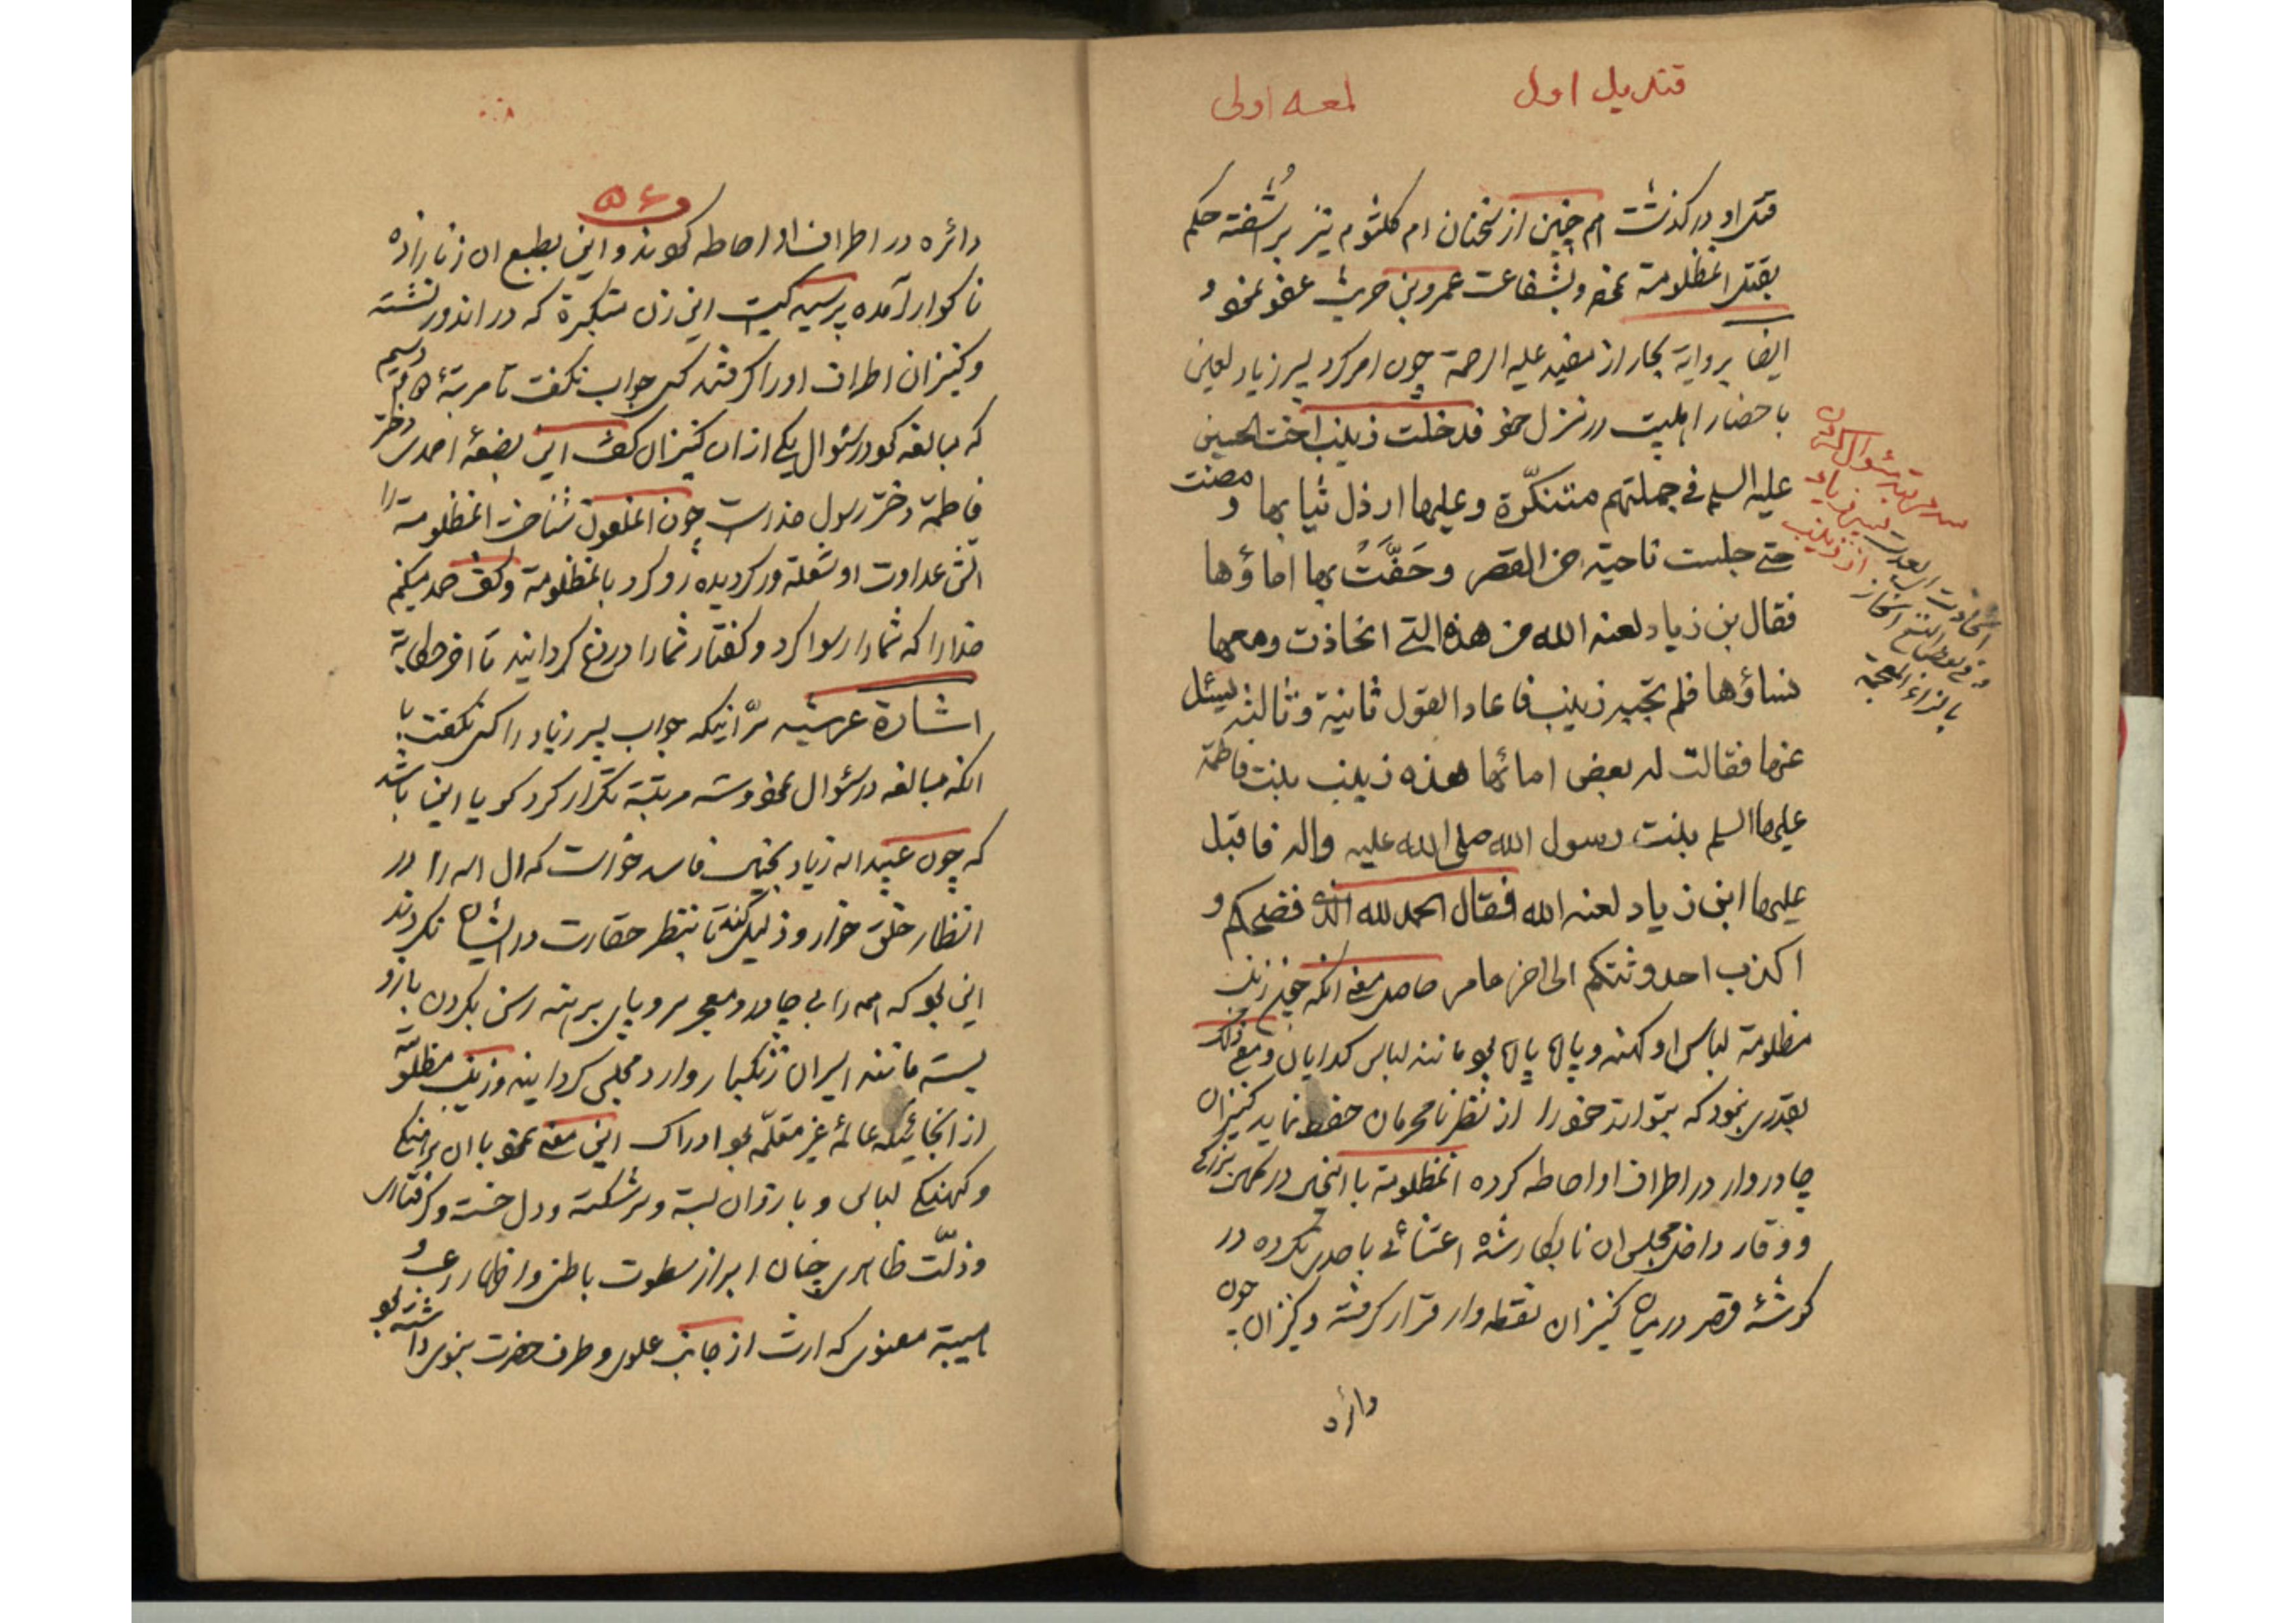 قندیل اول
لمعه اولی
قتل او در کذشت هم چنین از سخنان ام کلثوم نیز برآشفته حکم
بقتل انمظلومة نمود و بشفاعت عمرو بن حریث عفو نمود و
ایضا بروایة بحار از مفید علیه الرحمة چون امر کرد پسر زیاد لعین
باحضار اهلبیت در منزل خود فدخلت زینب اخت الحسین
علیه السلم فی جملتهم متنکّرة وعلیها ارذل ثیابها و مضت
حتی جلست ناحیة من القصر وحَفَّتْ بها اماؤها
فقال بن زیاد لعنه الله من هذه التی انحاذت ومعها
نساؤها فلم تجبه زینب فاعاد القول ثانیة وثالثه یسئل
عنها فقالت له بعض امائها هذه زینب بنت فاطمة
علیها السلم بنت رسول الله صلی الله علیه واله فاقبل
علیها ابن زیاد لعنه الله فقال الحمد لله الذی فضحکم و
اکذب احدوثتکم الی اخر ما مر حاصل معنی انکه چون زینب
مظلومة لباس او کهنه و پاره پاره بود مانند لباس کدایان ومع ذلک
بقدری نبود که بتواند خود را از نظر نامحرمان حفظ نماید کنیزان
چادروار در اطراف او احاطه کرده انمظلومة با انحال در کمال بزرکی
و وقار داخل مجلس ان نابکار شده اعتنائی باحدی نکرده در
کوشۀ قصر در میان کنیزان نقطه وار قرار کرفته و کنیزان چون
دائره
پسر زیاد
از زینب
بالزاء المعجمة
۵۶
دائره در اطراف او احاطه کردند و این بطبع ان زنازاده
ناکوار آمده پرسید کیست این زن متکبرة که در اندور نشسته
و کنیزان اطراف او را کرفتند کسی جواب نکفت تا مرتبۀ دویم سیم
که مبالغه کرد در سئوال یکی ازان کنیزان کفت این بضعۀ احمد دختر
فاطمة دختر رسول خداست چون انملعون شناخت انمظلومة را
اتش عداوت او شعله ور کردیده رو کرد بانمظلومة و کفت حمد میکنم
خدا را که شما را رسوا کرد و کفتار شما را دروغ کردانید تا اخر حکایة
اشارة عرشیه سرّ اینکه جواب پسر زیاد را کسی نکفت با
انکه مبالغه در سئوال نمود و سه مرتبة تکرار کرد کویا این باشد
که چون عبید اله زیاد بخیال فاسد خواست که ال اله را در
انظار خلق خوار و ذلیل کند تا بنظر حقارت در ایشان نکردند
این بود که همه را بی چادر و معجر سر و پای برهنه رسن بکردن بازو
بسته مانند اسیران زنکبار وارد مجلس کردانید و زینب مظلومه
از انجائیکه عالمۀ غیر معلّمه بود ادراک این معنی نمود با ان برهنکی
و کهنکی لباس و بازوان بسته و سر شکسته و دل خسته و کرفتاری
و ذلّت ظاهری چنان ابراز سطوت باطن و اظهار رعب و
هیبة معنوی که ارث از جانب علوی و طرف حضرت نبوی داشته بود